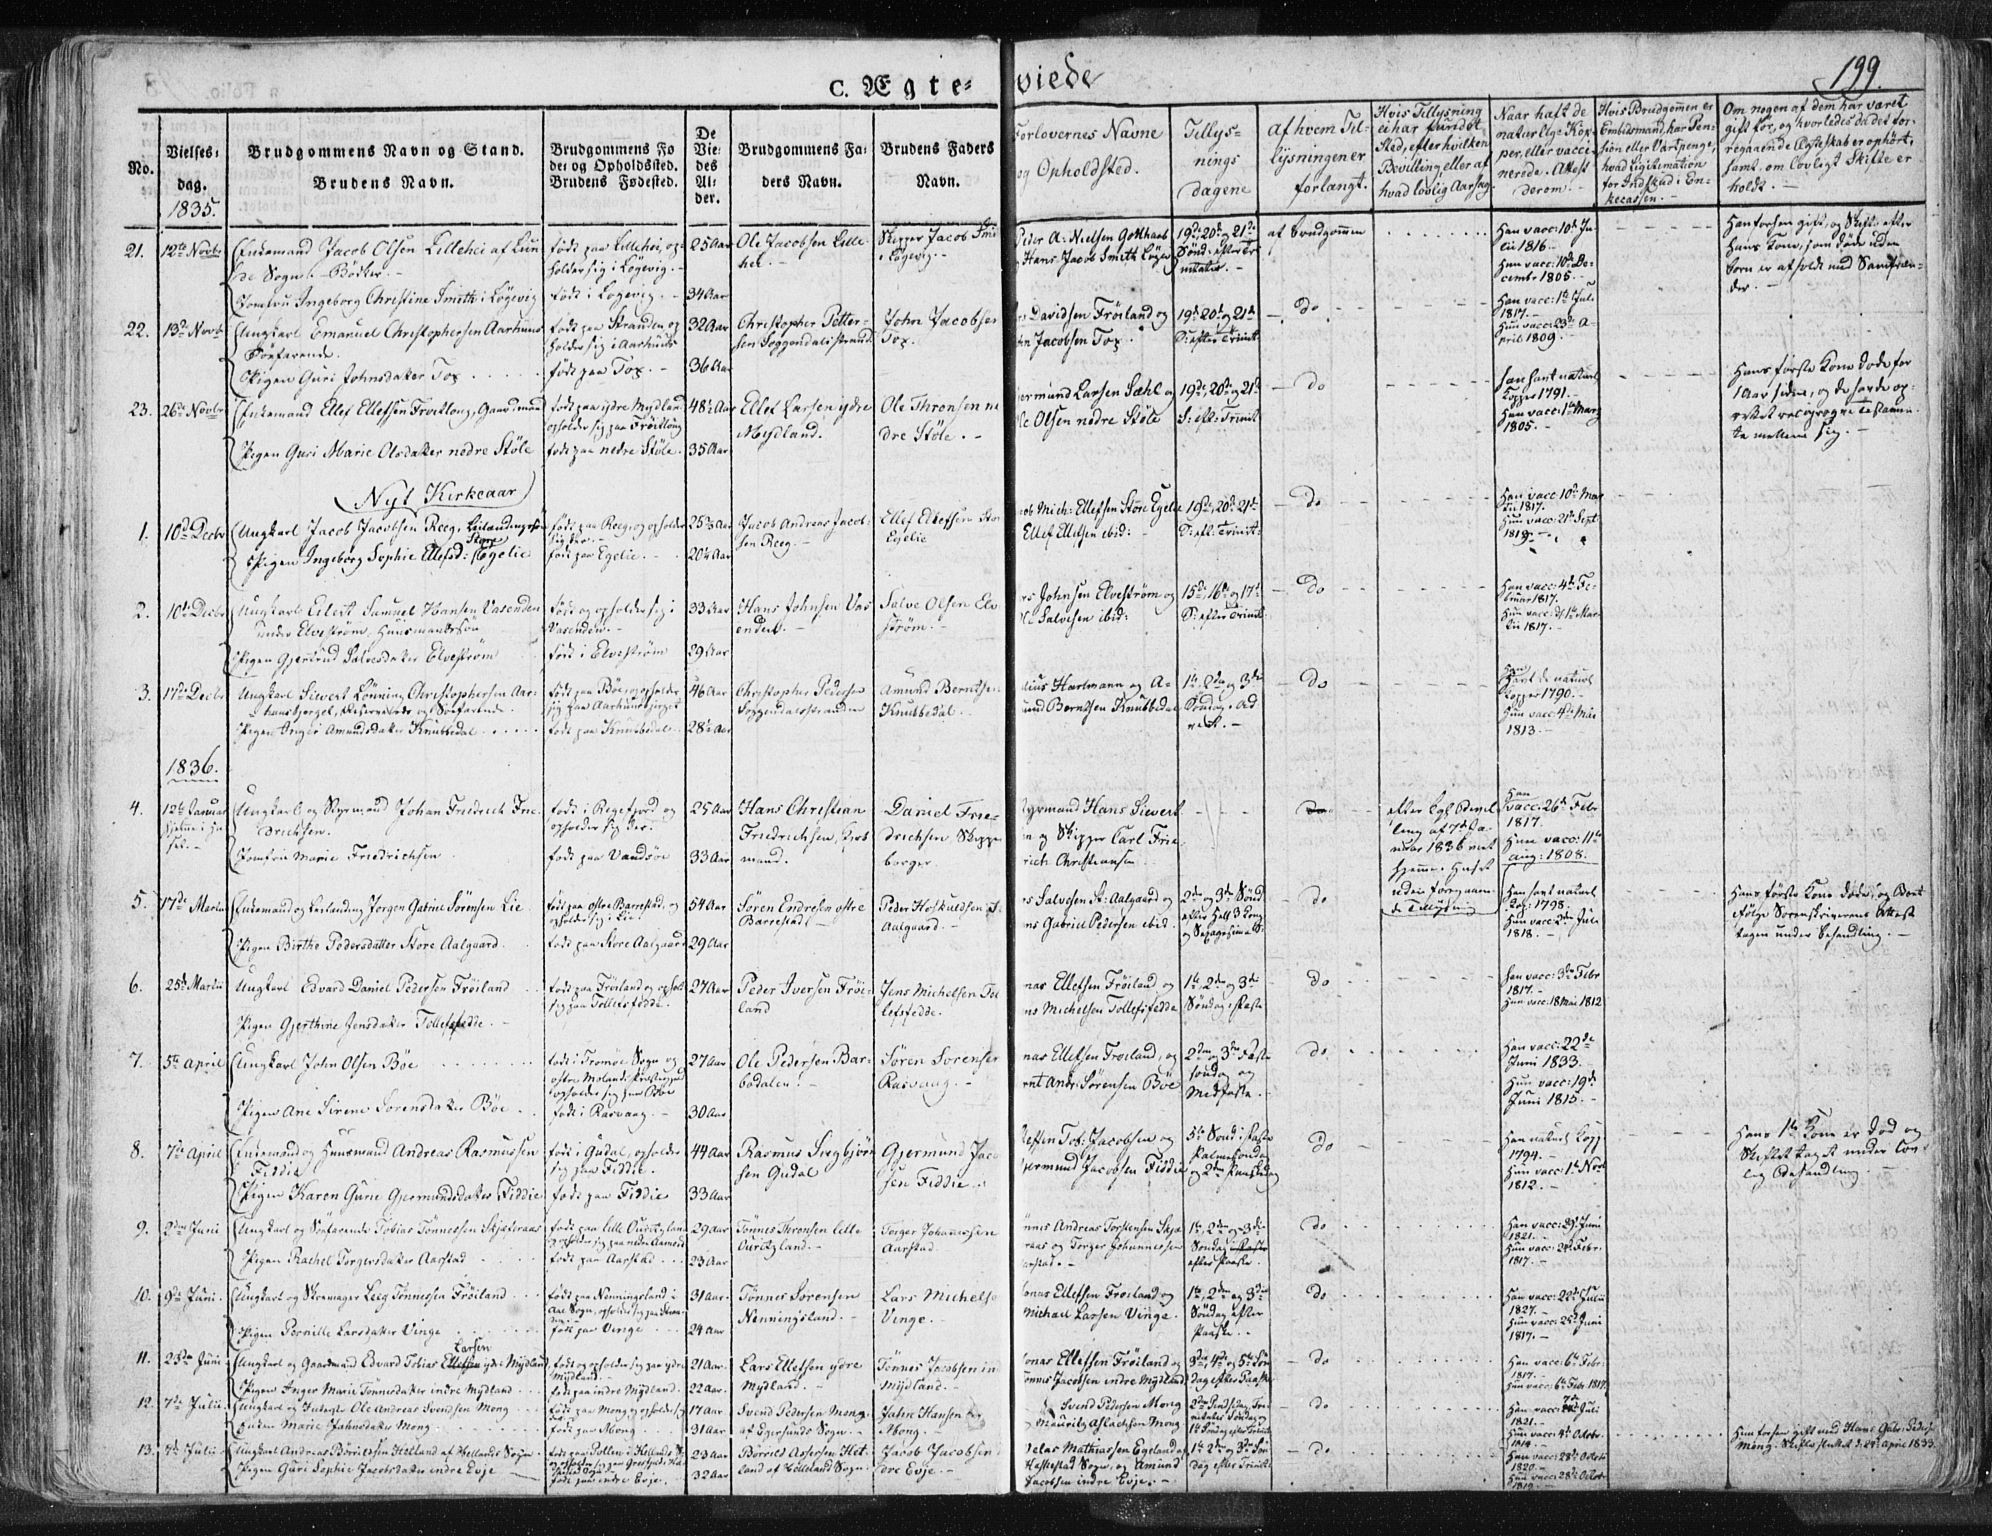 C. Ægte=
viede
199.
No.
Vielses-
dag.
1835.
Brudgommens Navn og Stand.
Brudens Navn.
Brudgommens Fø
de: og Opholdssted.
Brudens Fødested.
De
Vie=
des
Al=
der.
Brudgommens Fa=
ders Navn.
Brudens Faders
Navn.
Forlovernes Navne
og Opholdsted.
Tillys-
nings
dagene
af hvem Til-
lysningen er
forlangt.
Hvis Tillysning
ei har fundet
Sted, efter hvilken
Bevilling eller af
hvad lovlig Aarsag.
Naar haft de
naturlige Kop-
per, eller vacci
nerede. Attest
derom.
Hvis Brudgommen er
Embedsmand, har Pen-
sion eller Vartpenge,
hvad Legitimation
for Indskud i En-
kecassen.
Om nogen af dem har været
gift før, og hvorledes da det for-
regaaende Ægteskab er ophørt,
samt om lovligt Skifte er
holdt.
21. 12te Novbr
Enkemand Jacob Olsen Lillehei af Lun
de Sogn - Bødker.
Jomfru Ingeborg Christine Smith i Løgevig
født paa Lillehei, op-
holder sig i Løgevig.
født i Løgevig.
25 Aar
34 Aar
Ole Jacobsen Lille-
hei.
Skipper Jacob Smi
i Løgevig.
Peder A: Nielsen Gotthaab
Hans Jacob Smith Løgev
19de, 20de og 21de
Sønd: efter Tri
nitatis.
af Brudgommen
Han vacc: 10de Ju-
lii 1816.
Hun vacc: 10de De-
cember 1805.
Han forhen gift, og Skifte efter
hans Kone, som døde uden
Børn er afholdt med Samfræn-
der.
22. 13de Novb
Ungkarl Emanuel Christophersen Aarhuus
Søefarende.
Pigen Guri Johnsdatter Tox
født paa Stranden op
holder sig i Aarhuus
født paa Tox.
32 Aar
36 Aar
Christopher Petter-
sen Soggendalsstrand.
John Jacobsen
Tox.
Davidsen Frøiland og
Jacobsen Tox.
19de 20de og 21de
S: efter Trinit.
do
Han vacc: 1te Juli
1817.
Hun vacc: 23de A-
pril 1809.
23. 26de Novbr
Enkemand Ellef Ellefsen Frøitlog, Gaardmand
Pigen Guri Marie Olsdatter nedre Støle
født paa ydre Mydland
opholder sig paa Frøitlog
født paa nedre Støle.
48½ Aar
35 Aar
Ellef Larsen ydre
Mydland.
Ole Thronsen ne
dre Støle.
Gjermund Larsen Sæhl og
Ole Olsen nedre Støle
19de, 20de og 21de
S: eft: Trinit
do
han havt naturl
Kopper 1791.
Hun vacc: 1te Marz
1805.
Hans første Kone døde for
1 Aar siden, og de havde op-
rettet reciproqve Testamen-
te mellem sig.
Nyt Kirkeaar
1. 10de Decbr
Ungkarl Jacob Jacobsen Reeg, Leilændingssøn
Pigen Ingeborg Sophie Ellefsd: Store Egelie
født paa Reeg, og opholder
sig der.
født paa Egelie.
25½ Aar
20¼ Aar
Jacob Andreas Jacob-
sen Reeg.
Ellef Ellefsen Sto
Egelie
Jacob Mich: Ellefsen Store Egelie
Ellef Ellefsen ibid:
19de, 20de 21de
S: eft: Trinit:
do
Han vacc: 10de Mar
tii 1817.
Hun vacc: 21de Sept
1819.
2. 10de Decbr
Ungkarl Eilert Samuel Hansen Vasenden
under Elvestrøm, Huusmandssøn
Pigen Gjertrud Salvesdatter Elvestrøm
Født og opholder sig i
Vasenden.
født i Elvestrøm
33 Aar
29 Aar
Hans Johnsen Vas
enden.
Salve Olsen Elv
strøm.
Johnsen Elvestrøm og
Salvesen ibid:
15de, 16de og 17de
S: efter Trinit.
do
Han vacc: 4de Fe-
bruar 1817.
Hun vacc: d 1te Mar-
tii 1817.
3. 17de Decbr
Ungkarl Siewert Lønning Christophersen Aar-
huusbjerget, Reserverøder og Søefarende.
Pigen Inger Amundsdatter Knubbedal
født paa Bøe, opholder
sig paa Aarhuusbjerget
født paa Knubbedal
46 Aar
28½ Aar
Christopher Pedersen
Soggendalsstranden
Amund Berntsen
Knubbedal.
Hartmann og A-
mund Berntsen Knubbedal
1te, 2den og 3die
Søndag i Ad-
vent.
do
Han
havt de naturl
Kopper 1790.
Hun vacc: 4de Mai
1813.
1836.
4. 12te Januar
hjemme i Hu
set.
Ungkarl og Styrmand Johan Friedrich Frie-
drichsen.
Jomfru Marie Friedrichsen
født i Regefjord og
opholder sig der.
født paa Vandsøe
25 Aar
33 Aar
Hans Christian
Friedrichsen, Styr
mand.
Daniel Frie-
drichsen Skipper
borger.
Styrmand Hans Siewert
og Skipper Carl Frie-
drich Christiansen
do
efter Kgl: Bevil
ling af 7de Ja-
nuar 1836 viet
hjemme i Huset
uden foregaaen-
de Tillysning
Han
vacc: 26de Febr
1817.
Hun vacc: 11te
Aug: 1808.
5. 17de Martii
Enkemand og Leilænding Jørgen Gabriel Sørensen Lie
Pigen Birthe Pedersdatter Store Aalgaard
født paa østre Barrestad, og
opholder sig i Lie.
født paa Store Aalgaard
54 Aar
29 Aar
Søren Endresen østre
Barrestad
Peder Hoskuldsen S
Aalgaard.
Salvesen St: Aalgaard og
Gabriel Pedersen ibid.
2den og 3die Sønd
efter Hell 3 Kong
og Sexagesima S:
do
Han havt naturl
Kop: 1798.
Hun vacc 2den Juli
1818.
Hans første Kone døde, og Bevit
ifølge Sorenskriverens Attest
tagen under Behandling.
6. 25de Martii
Ungkarl Edvard Daniel Pedersen Frøiland
Pigen Gjerthine Jensdatter Tollefsfedde.
født paa Frøiland og ophol
sig paa Tollefsfedde.
27 Aar
Peder Iversen Frøi-
land
Jens Michelsen Tol
lefsfedde.
Jonas Ellefsen Frøiland og
Jens Michelsen Tollefsfedde
1te, 2den og 3die
Søndag i Faste
do
Han vacc: 3die Febr
1817.
Hun vacc: 18 Mai 1812
7. 5te April
Ungkarl John Olsen Bøe
Pigen Ane Sirene Sørensdatter Bøe
født i Tromøe Sogn og
østre Molands Præstegjeld
opholder sig paa Bøe
født i Rasvaag.
27 Aar
30 Aar
Ole Pedersen Bar-
bodalen.
Søren Sørensen
Rasvaag.
Jonas Ellefsen Frøiland, og
Bernt Andr: Sørensen Bøe
2den og 3die Faste-
søndag og
Midfaste.
do
Han vacc: 22de
Juni 1833.
Hun vacc: 19de
Juni 1815.
8. 7de April
Enkemand og Huusmand Andreas Rasmussen
Fiddie
Pigen Karen Gurie Gjermundsdatter Fiddie
født i Gudal, opholder
sig paa Fiddie.
født paa Fiddie
44 Aar
33 Aar
Rasmus Sivgbjørn
sen Gudal
Gjermund Jaco
sen Fiddie.
Steffen Tob: Jacobsen og
Gjermund Jacobsen Fiddie
5te Sønd i Faste
Palmesøndag
og 2den Paaskedag
do
Han naturl Kopp
1794.
Hun vacc: 1te Novb
1812.
Hans 1te Kone er død og
Skiftet taget under lov-
lig Behandling.
9. 2den Junii
Ungkarl og Søefarende Tobias Tønnessen Skjæveraas
Pigen Rachel Torgersdatter Aarstad
født paa Aarstad
29 Aar
23 Aar
Tønnes Thronsen lille
Ouritzland.
Torger Johannessen
Aarstad.
Tønnes Andreas Torstensen Skjæ
raas og Torger Johannessen
Aarstad.
1te, 2den og 3die
Søndag i Faste
efter Paaske.
do
Han vacc: 29de Juni
1821.
Hun vacc: 24de Febr.
1817.
10. 9de Juni
Ungkarl og Skomager Leeg Tønnessen Frøiland
Pigen Pernille Larsdatter Vinge
født paa Nenningsland i
Aae Sogn, opholder sig paa Strom
født paa Vinge
31 Aar
24 Aar
Tønnes Sørensen
Nenningsland.
Lars Michelse
Vinge.
Jonas Ellefsen Frøiland og
Michael Larsen Vinge.
1te, 2den og 3die
Søndag efter
Paaske.
do
Han vacc: 22de Julii
1827.
Hun vacc: 25de Juni
1817.
11. 23de Juni
Ungkarl og Gaardmand Edvard Tobias Ellefsen Larsen ydre Mydland
Pigen Anger Marie Tønnesdatter indre Mydland
født og opholder sig paa ydre
Mydland.
født paa indre Mydland.
21 Aar
22 Aar
Lars Ellefsen ydre
Mydland.
Tønnes Jacobsen in
Mydland.
Jonas Ellefsen Frøiland og
Tønnes Jacobsen indre Mydland
3die, 4de og 5te Søn
dag efter Paaske
do
Han vacc: 6te Febr:
1817.
Hun vacc: 6te Febr. 1817
12. 7de Julii
Ungkarl og Inderst Ole Andreas Svendsen Mong
Enken Marie Jahnsdatter Mong
født paa Mong, opholder sig
der.
født paa Mong.
17 Aar
31 Aar
Svend Pedersen Mong
af Egersunds Sogn.
Jahn Hansen
Mong.
Svend Pedersen Mong
Mauritz Aslachsen Mong
2den Pintsedag, Tri
nitatis Søndag og
1te Søndag efter Trinit
Han vacc: 7de Juli
1821.
Hun vacc: 4de Octobr
1814.
Hun forhen gift med Hans Gabr: Peders
Mong. Skifte sluttet d: 24de April 1833.
13. 8de Julii
Ungkarl Andreas Børrildsen Hetland af Hellands Sogn
Pigen Guri Sophie Jacobsdatter indre Evje
født paa indre Evje.
23 Aar
32 Aar
Børrild Asersen Het-
land af Helleland Sogn.
Jacob Jacobsen
dre Evje.
Mathiassen Egeland af
Heskestad Sogn, og Amund
Jacobsen indre Evje.
1te 2den og 3die Søn
dag efter Trinit:
do
Han vacc: 28de Octobr
1820.
Hun vacc: 28de Octobr
1819.